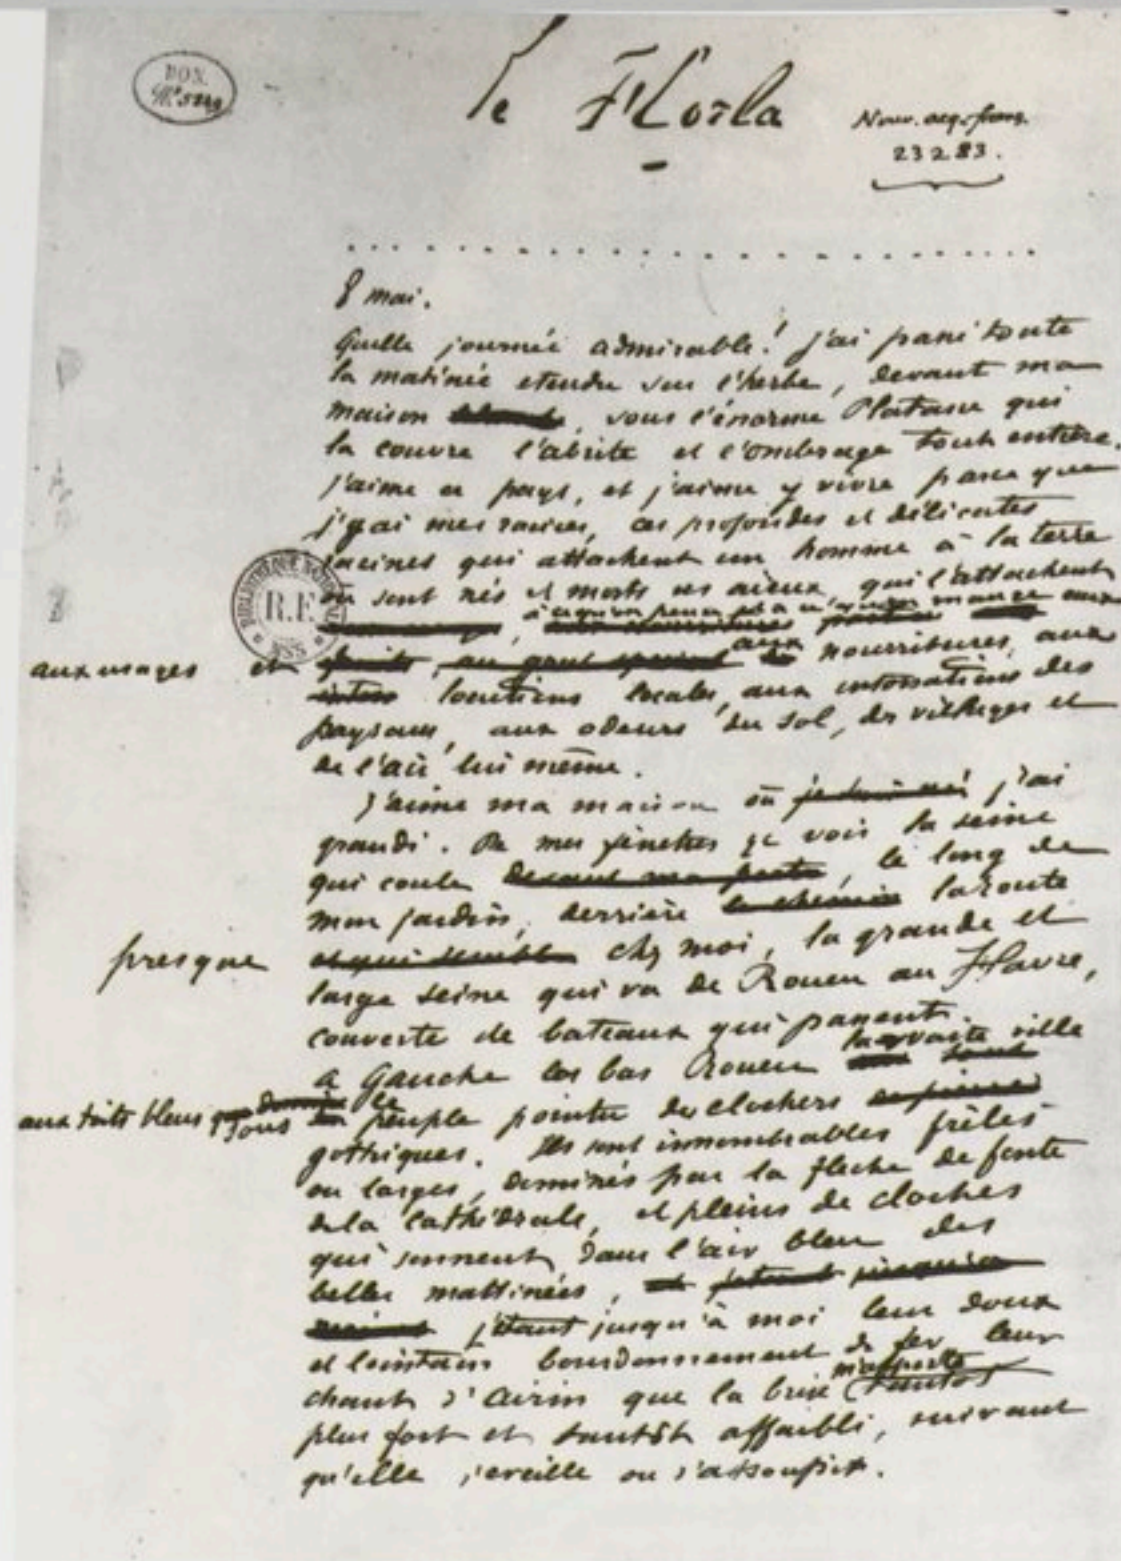 DON.
Le Horla
Nouv. acq. franç.
23283.
8 mai.
Quelle journée admirable! J'ai passé toute
la matinée etendu sur l'herbe, devant ma
maison, sous l'énorme Platane qui
la couvre l'abrite et l'ombrage tout entière.
J'aime ce pays, et j'aime y vivre parce que
j'y ai mes racines, ces profondes et délicates
racines qui attachent un homme à la terre
où sont nés et morts ses aieux, qui l'attachent
à ce qu'on pense et à ce qu'on mange
R.F.
aux usages et aux nourritures, aux
locutions locales, aux intonations des
paysans, aux odeurs du sol, des villages et
de l'air lui même.
J'aime ma maison où je suis né j'ai
grandi. De mes fenêtres je vois la seine
qui coule devant ma porte, le long de
mon jardin, derrière le chemin la route
presque et qui semble chez moi, la grande et
large seine qui va de Rouen au Havre,
couverte de bateaux qui passent.
a gauche las bas Rouen la vaste ville
aux toits bleus sous le peuple pointu des clochers
gothiques. Ils sont innombrables frêles
ou larges, dominés par la fleche de fonte
de la cathédrale, et pleins de cloches
qui sonnent dans l'air bleu des
belles mattinées, et jetant jusqu'à
jetant jusqu'à moi leur doux
et lointain bourdonnement de fer leur
chant d'airin que la brise m'apporte tantot
plus fort et tantôt affaibli, suivant
qu'elle s'eveille ou s'assoupit.